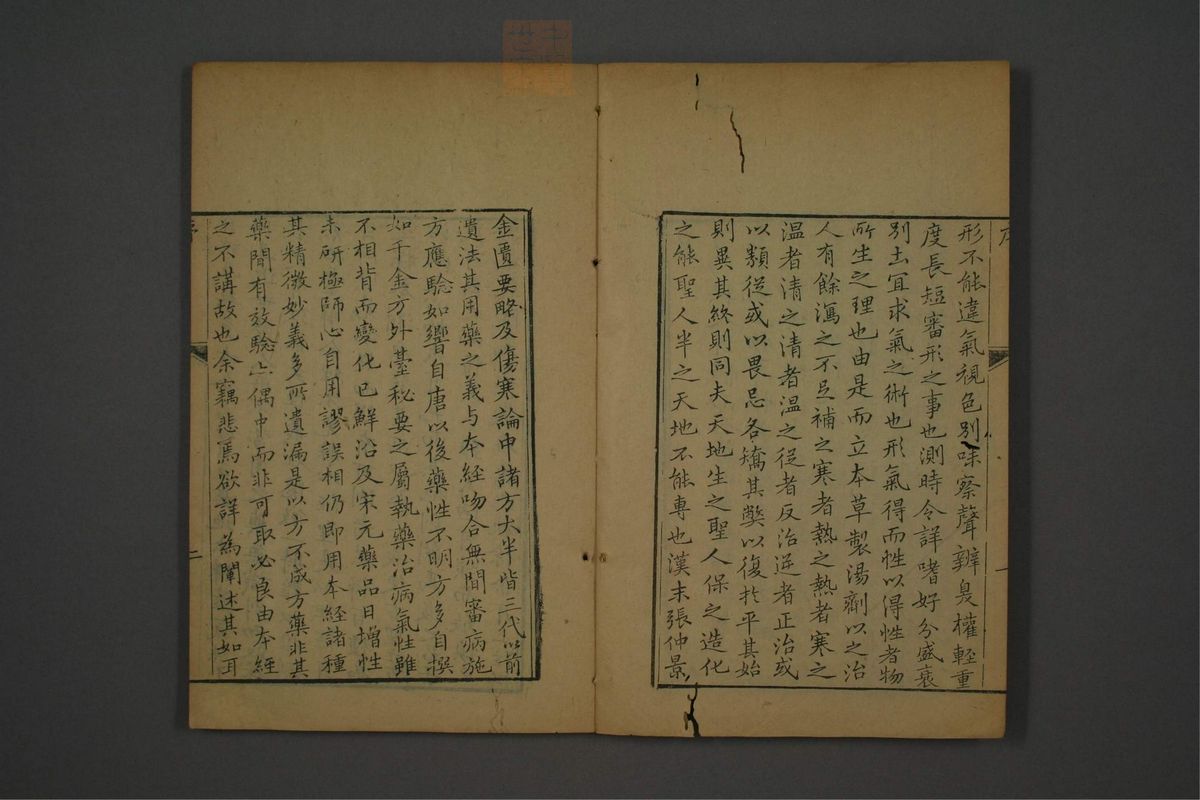 形不能違氣視色別味察聲辨臭權輕重
度長短審形之事也測時令詳嗜好分盛衰
別土冝求氣之術也形氣得而性以得性者物
所生之理也由是而立本草製湯劑以之治
人有餘瀉之不足補之寒者熱之熱者寒之
温者清之清者温之從者反治逆者正治或
以類從或以畏忌各矯其獘以復扵平其始
則異其終則同夫天地生之聖人保之造化
之能聖人半之天地不能專也漢末張仲景
金匱要略及傷寒論中諸方大半皆三代以前
遺法其用藥之義与本經吻合無間審病施
方應驗如響自唐以後藥性不明方多自撰
如千金方外臺秘要之屬執藥治病氣性雖
不相背而變化已鮮沿及宋元藥品日增性
未研極師心自用謬誤相仍即用本經諸種
其精微妙義多所遺漏是以方不成方藥非其
藥間有效驗亦偶中而非可取必良由本經
之不講故也余竊悲焉欲詳為闡述其如耳
序
二
一